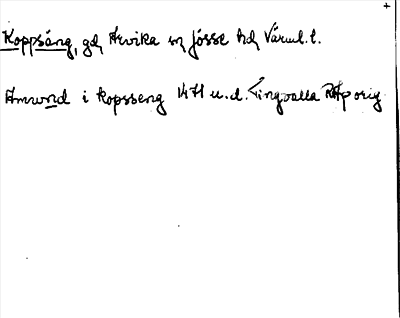 +
Koppsäng, gd, Arvika sn Jösse hd, Värml. l.
Amund i Kopsseng 1471 u.d. Tingvalla RAp orig